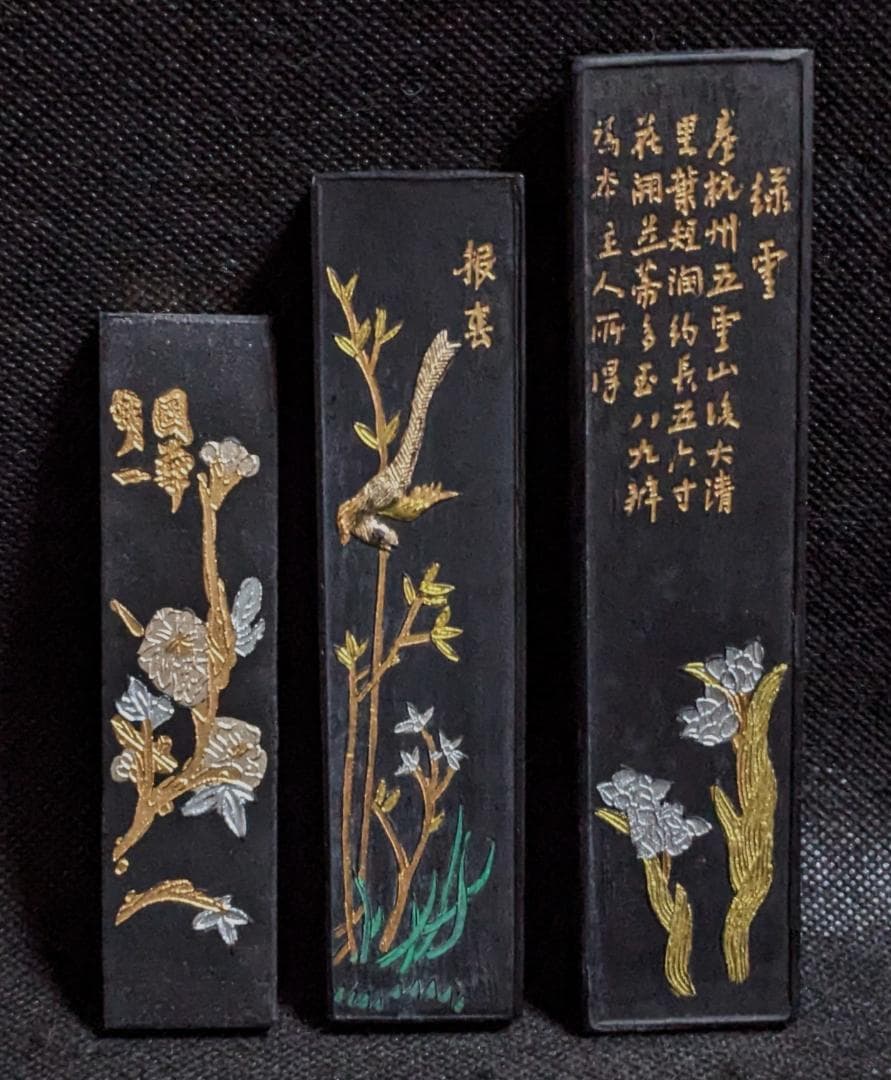 國華
第一
报春
緑雲
產杭州五雲山後大清
里葉短闊約長五六寸
花開並蒂多至八九瓣
為本主人所得